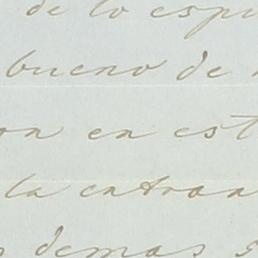 de lo espi
bueno de
on en est
la entraa
demas s